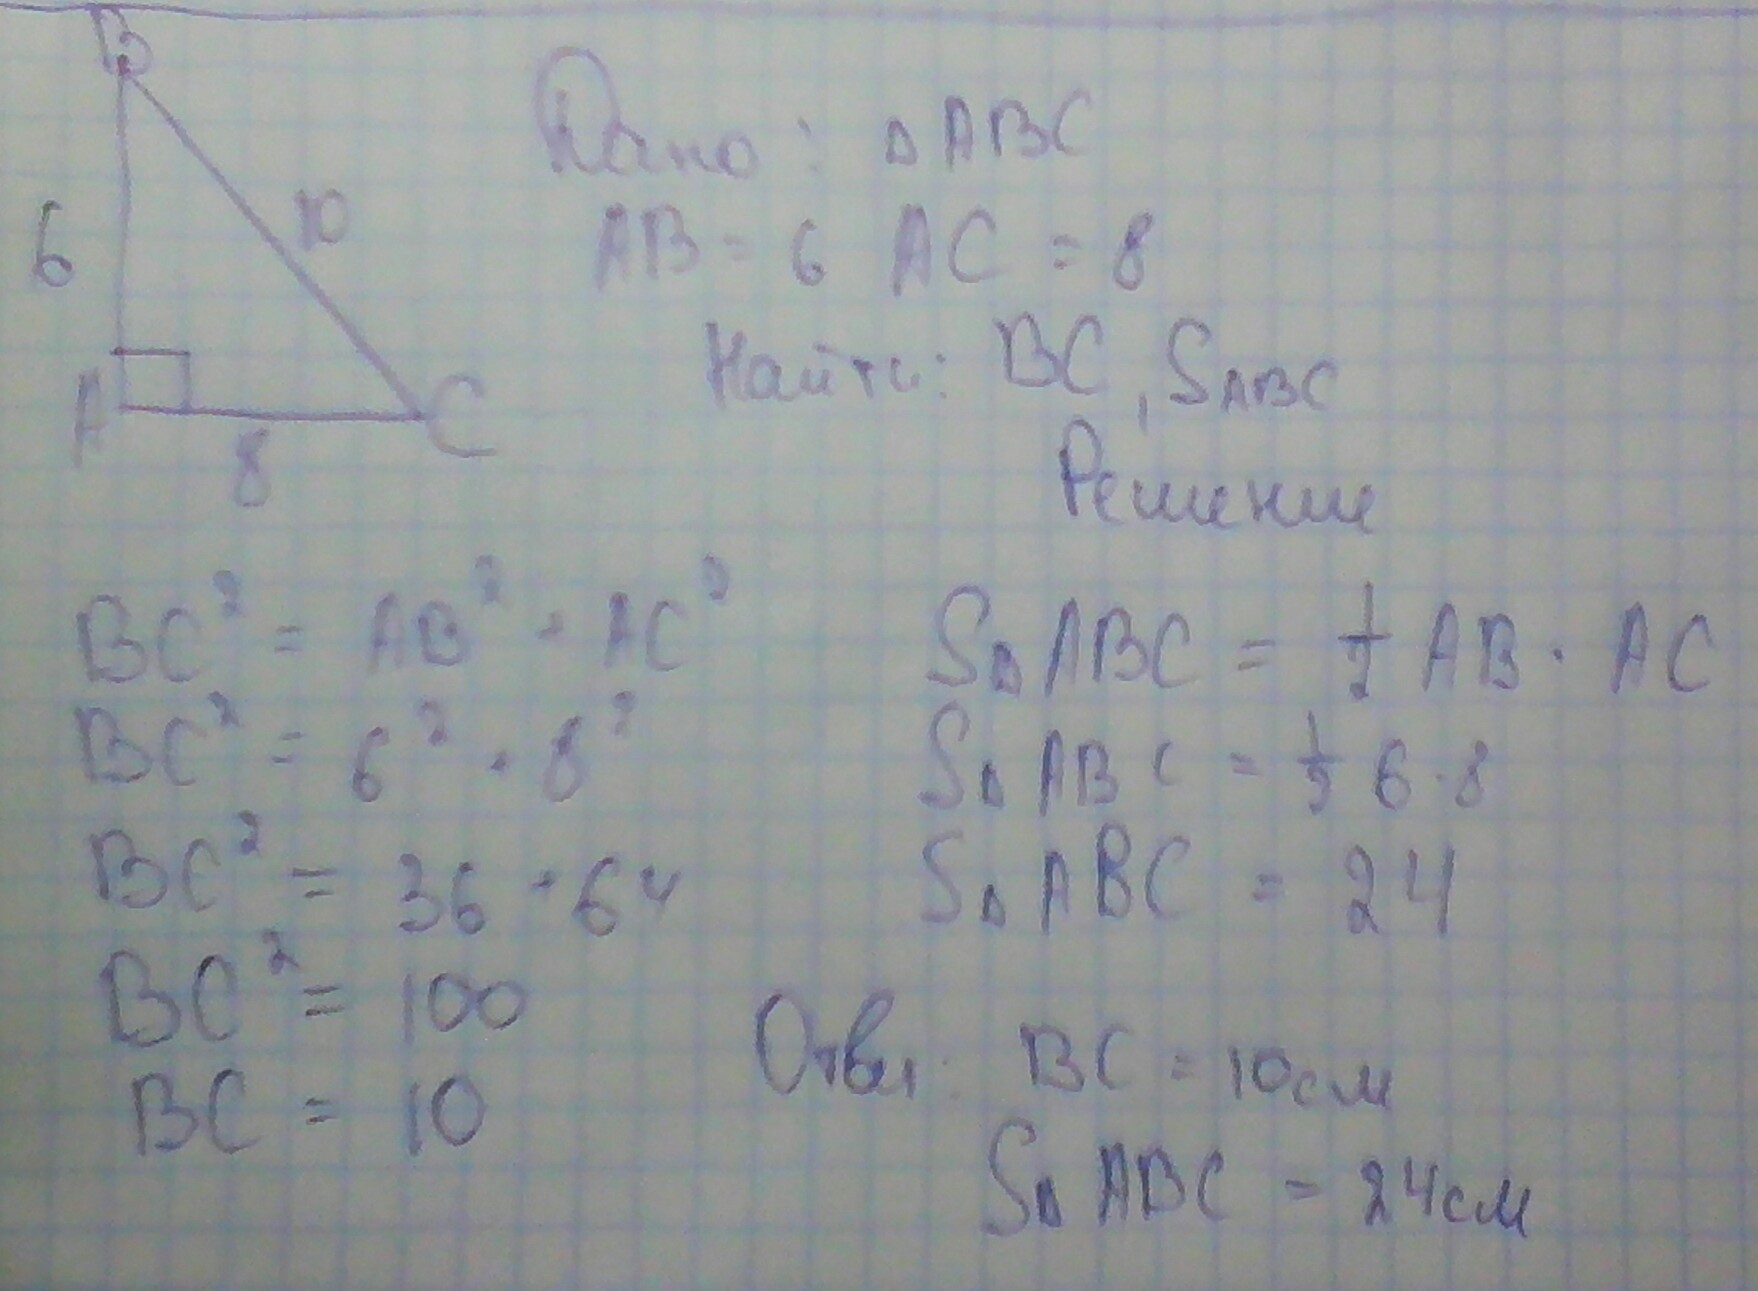 B
6
10
A
8
C
Дано: Δ ABC
AB = 6 AC = 8
Найти: BC, SABC
Решение
BC² = AB² + AC²
BC² = 6² + 8²
BC² = 36 + 64
BC² = 100
BC = 10
SΔ ABC = 1/2 AB · AC
SΔ ABC = 1/2 6 · 8
SΔ ABC = 24
Ответ: BC = 10см
SΔ ABC = 24см